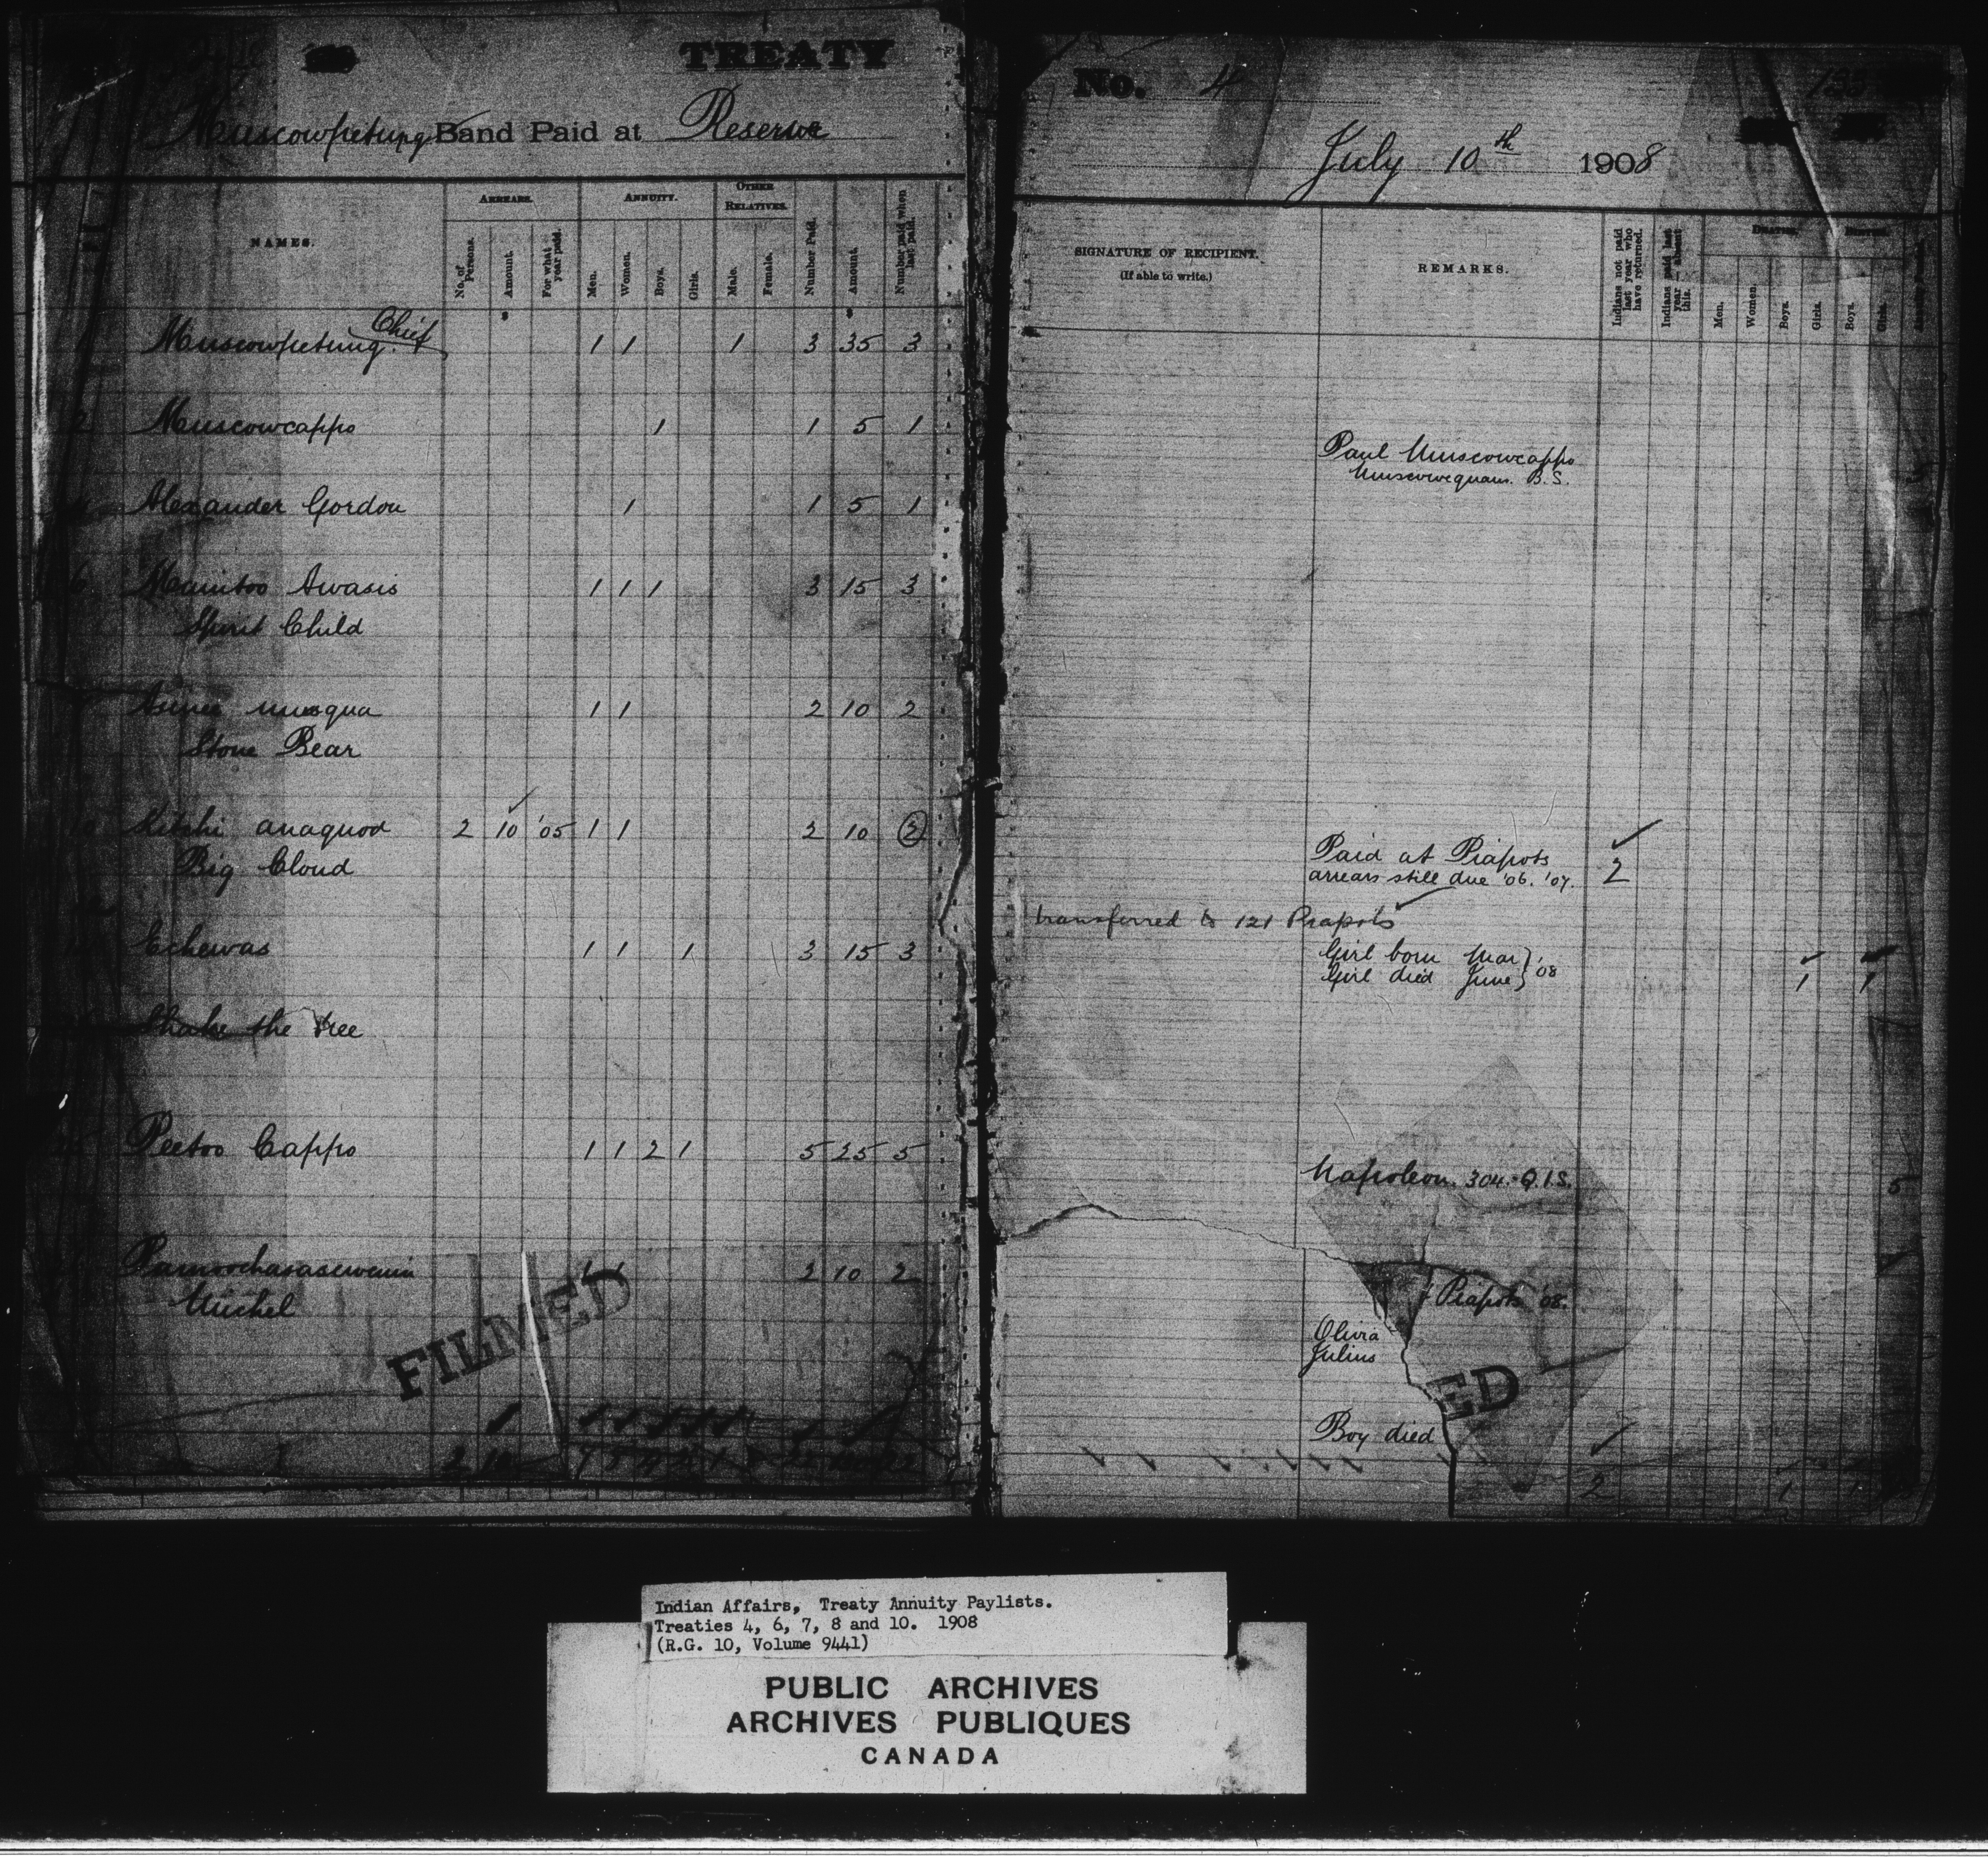 TREATY
No. 4
Muscowpetung Band Paid at Reserve
July 10th 1908
NAMES.
ARREARS.
No. of Persons.
Amount.
For what year paid.
ANNUITY.
Men.
Women.
Boys.
Girls.
OTHER RELATIVES.
Male.
Female.
Number Paid.
Amount.
Number paid when last paid.
SIGNATURE OF RECIPIENT.
(If able to write.)
REMARKS.
Indians not paid last year who have returned.
Indians paid last year — absent this.
DEATHS.
Men.
Women.
Boys.
Girls.
BIRTHS.
Boys.
Girls.
Muscowpetung. Chief 1 1 1 3 35 3
2 Muscowcappo 1 1 5 1
Paul Muscowcappo
Muscowequan. B.S.
Alexander Gordon 1 1 5 1
6 Manitoo Awasis 1 1 1 3 15 3
Spirit Child
Asinee musqua 1 1 2 10 2
Stone Bear
Kitchi anaquod 2 10 '05 1 1 2 10 2
Big Cloud
Paid at Piapots
arrears still due '06. '07. 2
transferred to 121 Piapots
Echewas 1 1 1 3 15 3
Girl born Mar } '08
Girl died June } 1 1
Shake the tree
Peetoo Cappo 1 1 2 1 5 25 5
Napoleon. 304. Q.I.S. 5
Pamoochasasewenin 1 1 2 10 2
Michel
Piapots '08.
Olivia
Julius
Boy died
FILMED
ED
2 10
2 1
Indian Affairs, Treaty Annuity Paylists.
Treaties 4, 6, 7, 8 and 10. 1908
(R.G. 10, Volume 9441)
PUBLIC ARCHIVES
ARCHIVES PUBLIQUES
CANADA